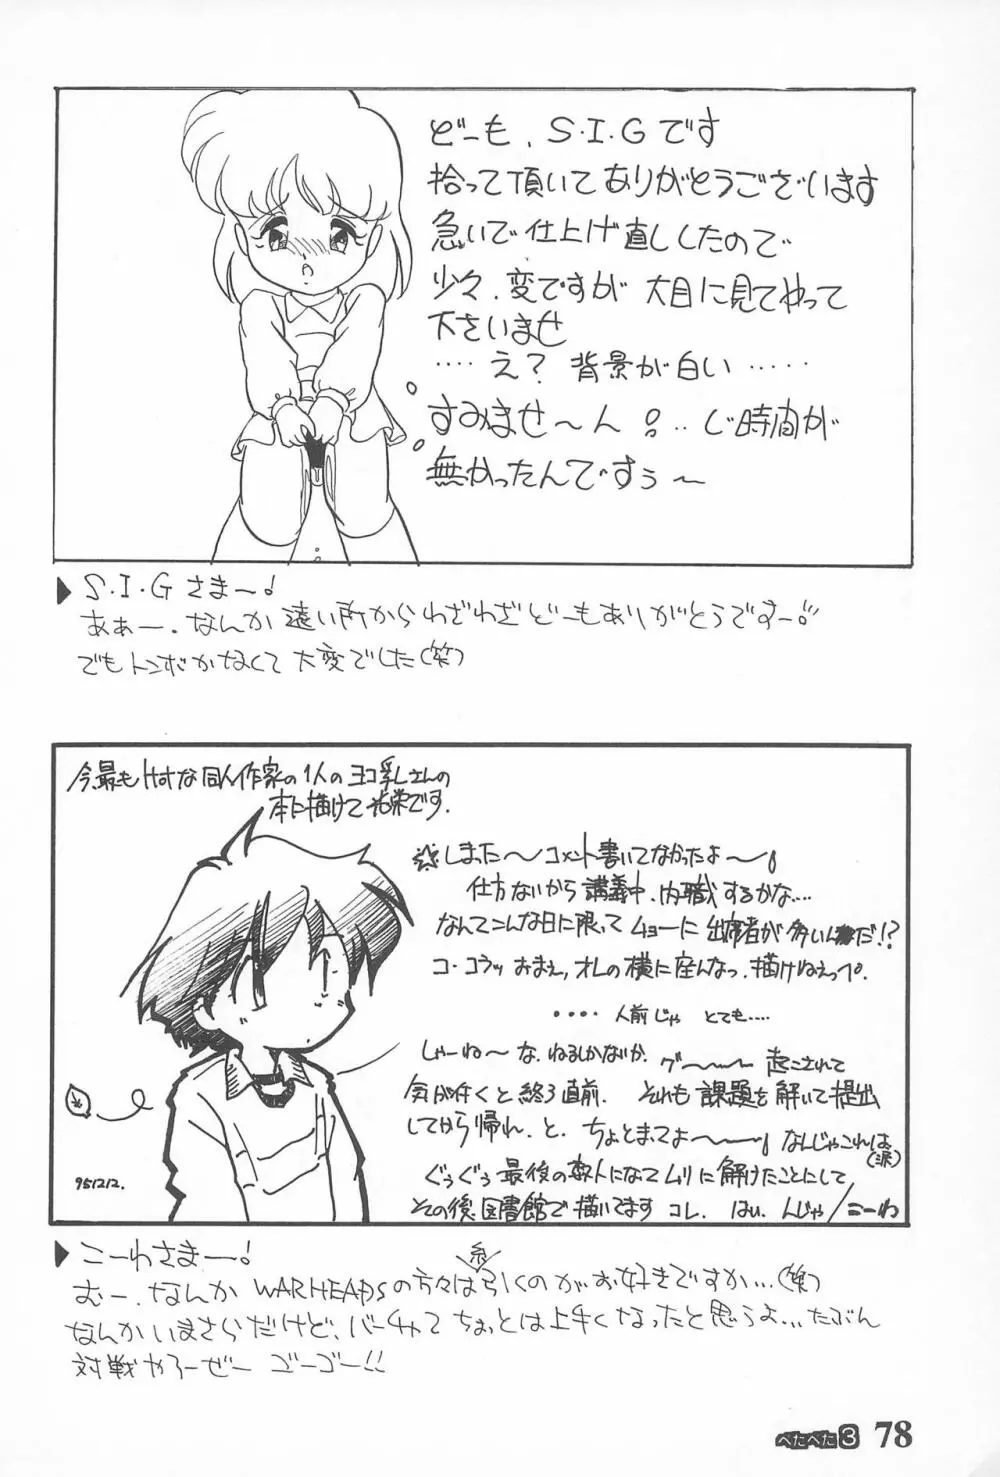 どーも、S・I・Gです
拾って頂いてありがとうございます
急いで仕上げ直ししたので
少々、変ですが 大目に見てやって
下さいませ
‥‥え？ 背景が白い‥‥‥
すみませ〜ん！‥じ時間が
無かったんですぅ〜
▶S・I・Gさま〜！
あぁー、なんか遠い所からわざわざどーもありがとうですー！
でもトンボがなくて大変でした(笑)
今、最も な同人作家の1人のヨコ乳さんの
本に描けて光栄です。
☆しまった〜コメント書いてなかったよ〜！
仕方ないから講義中、内職するかな‥‥
なんでこんな日に限ってムョーに出席者が多いんだ!?
コ・コラッ おまえっ、オレの横に座んなっ、描けねえっぺ。
・・・・人前じゃ とても‥‥
しゃーね〜な、ねるしかないか、 グ〜〜〜 起こされて
気が付くと終る直前、 それも課題を解いて提出
してから帰れ、と、ちょとまてよ〜〜！なんじゃこれは(涙)
ぐぅぐぅ最後の数人になってムリに解けたことにして
その後、図書館で描いてます コレ、 はい、んじゃ/こーわ
951212.
▶こーわさまー！
むー、なんかWARHEADSの方々は糸引くのがお好きですか…(笑)
なんかいまさらだけど、バーチャてちょっとは上手くなったと思うよ…たぶん
対戦やろーぜー ゴーゴー!!
ぺたぺた3 78